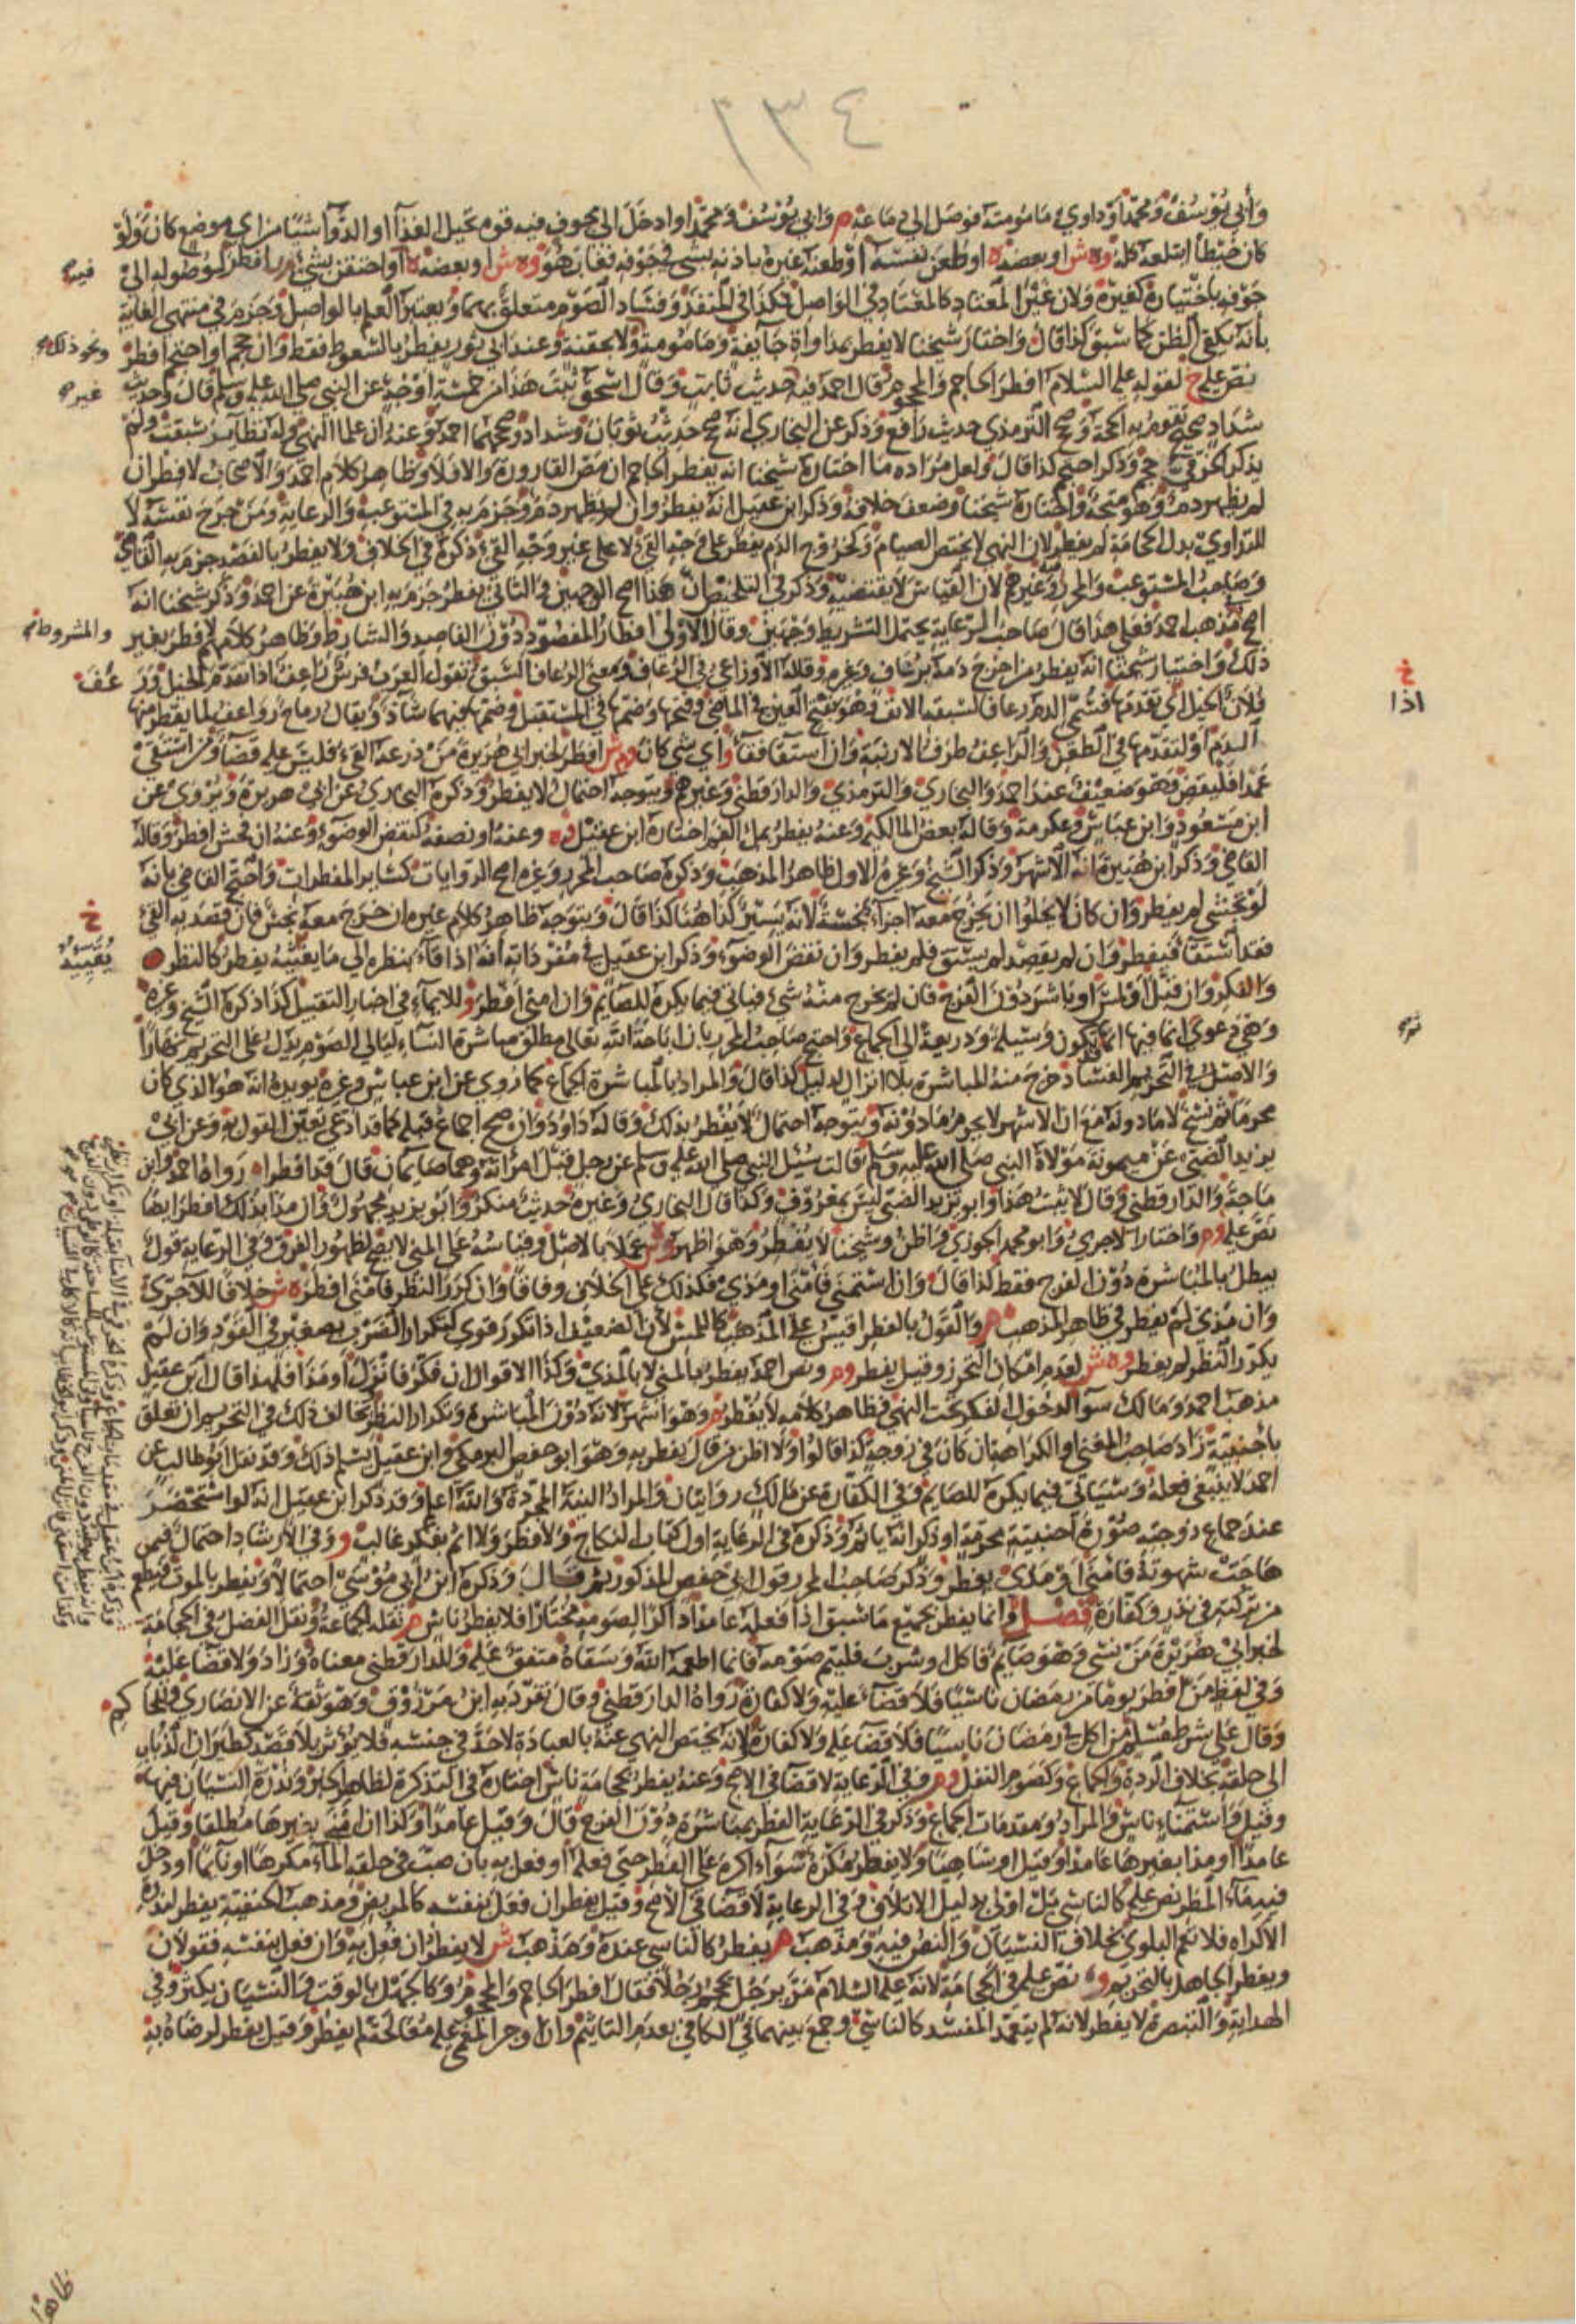 ٢٣٤
وأبي يوسف ومحمد أو داوى مأمومته فوصل إلى دماغه م وأبي يوسف ومحمد أو أدخل إلى مجوف فيه قوة تحيل الغذاء أو الدواء شيئا من أي موضع كان ولو
كان خيطا ابتلعه كله وه ش أو بعضه ه أو طعن نفسه أو طعنه غيره بإذنه بشيء في جوفه فغاب هو وه ش أو بعضه ه أو احتقن بشيء م ر أفطر لوصوله إلى
جوفه باختياره كغيره ولأن غير المعتاد كالمعتاد في الواصل فكذا في المنفذ وفساد الصوم متعلق بهما ويعتبر العلم بالواصل وجزم في منتهى الغاية
بأنه يكفي الظن كما سبق كذا قال واختار شيخنا لا يفطر بمداواة جائفة ومأمومة ولا بحقنة وعند أبي ثور يفطر بالسعوط فقط وإن حجم أو احتجم أفطر
نص عليه خ لقوله عليه السلام أفطر الحاجم والمحجوم قال أحمد فيه حديث ثابت وقال إسحق ثبت هذا من خمسة أوجه عن النبي صلى الله عليه وسلم قال وحديث
شداد صحيح تقوم به الحجة وصحح الترمذي حديث رافع وذكر عن البخاري أنه صح حديث ثوبان وشداد وصححهما أحمد وعنه إن علما النهي وله نظائر سبقت ولم
يذكر الخرقي حجم وذكر احتجم كذا قال ولعل مراده ما اختاره شيخنا أنه يفطر الحاجم إن مص القارورة وإلا فلا وظاهر كلام أحمد والأصحاب لا فطر إن
لم يظهر دم وهو متجه واختاره شيخنا وضعف خلافه وذكر ابن عقيل أنه يفطر وإن لم يظهر دم وجزم به في المستوعب والرعاية ومن جرح نفسه لا
للتداوي بدل الحجامة لم يفطر لأن النهي لا يختص الصيام وكخروج الدم يفطر على وجه القيء لا على غير وجه القيء ذكره في الخلاف ولا يفطر بالفصد جزم به القاضي
وصاحب المستوعب والمحرر وغيرهم لأن القياس لا يقتضيه وذكر في التلخيص أن هذا أصح الوجهين والثاني يفطر جزم به ابن هبيرة عن أحمد وذكر شيخنا أنه
أصح مذهب أحمد فعلى هذا قال صاحب الرعاية يحتمل التشريط وجهين وقال الأولى إفطار المفصود دون الفاصد والشارط وظاهر كلامهم لا فطر بغير
ذلك واختيار شيخنا أنه يفطر من أخرج دمه برعاف وغيره وقاله الأوزاعي في الرعاف ومعنى الرعاف السبق تقول العرب فرس راعف إذا تقدم الخيل ورعف
فلان الخيل أي تقدمها فسمي الدم رعافا لسبقه الأنف وهو بفتح العين في الماضي وفتحها وضمها في المستقبل وضمها فيهما شاذ ويقال رماح رواعف لما يقطر منها
الدم أو لتقدمها في الطعن والراعف طرف الأرنبة وإن استقاء فقاء أي شيء كان وم ش أفطر لخبر أبي هريرة من ذرعه القيء فليس عليه قضاء ومن استقى
عمدا فليقض وهو ضعيف عند أحمد والبخاري والترمذي والدارقطني وغيرهم ويتوجه احتمال لا يفطر وذكره البخاري عن أبي هريرة ويروى عن
ابن مسعود وابن عباس وعكرمة وقاله بعض المالكية وعنه يفطر بملء الفم اختاره ابن عقيل وه وعنه أو نصفه كنقض الوضوء وعنه إن فحش أفطر وقاله
القاضي وذكر ابن هبيرة أنه الأشهر وذكر الشيخ وغيره الأول ظاهر المذهب وذكره صاحب المحرر وغيره أصح الروايات كسائر المفطرات واحتج القاضي بأنه
لو تجشى لم يفطر وإن كان لا يخلوا أن يخرج معه أجزاء نجسة لأنه يسير كذا هنا كذا قال ويتوجه ظاهر كلام غيره إن خرج معه نجس فإن قصد به القيء
فقد استقاء فيفطر وإن لم يقصد لم يستق فلم يفطر وإن نقض الوضوء وذكر ابن عقيل في مفرداته أنه إذا قاء بنظره إلى ما يغثيه يفطر كالنظر
والفكر وإن قبل أو لمس أو باشر دون الفرج فإن لم يخرج منه شيء فيأتي فيما يكره للصائم وإن أمنى أفطر و للإيماء في أخبار التقبيل كذا ذكره الشيخ وغيره
وهي دعوى إنما فيها أنها قد تكون وسيلة وذريعة إلى الجماع واحتج صاحب المحرر بأن إباحة الله تعالى مطلق مباشرة النساء ليالي الصوم يدل على التحريم نهارا
والأصل في التحريم الفساد خرج منه المباشرة بلا إنزال لدليل كذا قال والمراد بالمباشرة الجماع كما روي عن ابن عباس وغيره يؤيده أنه هو الذي كان
محرما ثم نسخ لا ما دونه مع أن الأشهر لا يحرم ما دونه ويتوجه احتمال لا يفطر بذلك وقاله داود وإن صح إجماع قبله كما قد ادعي تعين القول به وعن أبي
يزيد الضني عن ميمونة مولاة النبي صلى الله عليه وسلم قالت سئل النبي صلى الله عليه وسلم عن رجل قبل امرأته وهما صائمان قال قد أفطرا رواه أحمد وابن
ماجة والدارقطني وقال لا يثبت هذا وأبو يزيد الضني ليس بمعروف وكذا قال البخاري وغيره حديث منكر وأبو يزيد مجهول وإن مذا بذلك أفطر أيضا
نص عليه وم واختار الآجري وأبو محمد الجوزي وأظن وشيخنا لا يفطر وهو أظهر وه ش عملا بالأصل وقياسه على المني لا يصح لظهور الفرق وفي الرعاية قول
يبطل بالمباشرة دون الفرج فقط كذا قال وإذا استمنى فأمنى أو مذي فكذلك على الخلاف وفاقا وإن كرر النظر فأمنى أفطر ه ش خلافا للآجري
وإن مذى لم يفطر في ظاهر المذهب م والقول بالفطر أقيس على المذهب كاللمس لأن الضعيف إذا تكرر قوي كتكرار الضرب بصغير في القود وإن لم
يكرر النظر لم يفطر وه ش لعدم إمكان التحرز وقيل يفطر وم ونص أحمد يفطر بالمني لا بالمذي وكذا الأقوال إن فكر فأنزل أو مذا فلهذا قال ابن عقيل
مذهب أحمد ومالك سواء لدخول الفكر تحت النهي وظاهر كلامه لا يفطر م وهو أشهر لأنه دون المباشرة وتكرار النظر يخالف ذلك في التحريم إن تعلق
بأجنبية زاد صاحب المغني أو الكراهة إن كان في زوجة كذا قالوا ولا أظن من قال يفطر به وهو أبو حفص البرمكي وابن عقيل يسلم ذلك وقد نقل أبو طالب عن
أحمد لا ينبغي فعله وسيأتي فيما يكره للصائم وفي الكفارة عن مالك روايتان والمراد النية المجردة والله أعلم وقد ذكر ابن عقيل أنه لو استحضر
عند جماع زوجته صورة أجنبية محرمة أو ذكر أنه يأثم وذكره في الرعاية أول كتاب النكاح ولا فطر ولا إثم بفكر غالب و وفي الإرشاد احتمال فيمن
هاجت شهوته فأمنى أو مذى يفطر وذكر صاحب المحرر قول أبي حفص المذكور ثم قال وذكره ابن أبي موسى احتمالا ويفطر بالموت فيطعم
من تركته في نذر وكفارة فصل وإنما يفطر بجميع ما سبق إذا فعله عامدا ذاكرا لصومه مختارا فلا يفطر ناس م نقله الجماعة ونقل الفضل في الحجامة
لخبر أبي هريرة من نسي وهو صائم فأكل أو شرب فليتم صومه فإنما أطعمه الله وسقاه متفق عليه وللدارقطني معناه وزاد ولا قضاء عليه
وفي لفظ من أفطر يوما من رمضان ناسيا فلا قضاء عليه ولا كفارة رواه الدارقطني وقال تفرد به ابن مرزوق وهو ثقة عن الأنصاري والحاكم
وقال على شرط مسلم من أكل في رمضان ناسيا فلا قضاء عليه ولا كفارة ولأنه يختص النهي عنه بالعبادة لا حد في جنسه فلا يؤثر بلا قصد كطيران الذباب
إلى حلقه بخلاف الردة والجماع وكصوم النفل وم وفي الرعاية لا قضاء في الأصح وعنه يفطر بحجامة ناس اختاره في التذكرة لظاهر الخبر وندرة النسيان فيها
وقيل واستمناء ناس والمراد ومقدمات الجماع وذكر في الرعاية الفطر بمباشرة دون الفرج قال وقيل عامدا وكذا إن أمنى بغيرها مطلقا وقيل
عامدا أو مذا بغيرها عامدا وقيل أو ساهيا ولا يفطر مكره سواء أكره على الفطر حتى فعله أو فعل به بأن صب في حلقه الماء مكرها أو نائما أو دخل
فيه ماء المطر نص عليه كالناسي بل أولى بدليل الإتلاف و في الرعاية لا قضاء في الأصح وقيل يفطر إن فعل بنفسه كالمريض ومذهب الحنفية يفطر لندرة
الإكراه فلا تعم البلوى بخلاف النسيان والنص فيه ومذهب م يفطر كالناسي عنده ومذهب ش لا يفطر إن فعل به وإن فعل بنفسه فقولان
ويفطر الجاهل بالتحريم وه نص عليه في الحجامة لأنه عليه السلام مر برجل يحجم رجلا فقال أفطر الحاجم والمحجوم وكالجهل بالوقت والنسيان يكثر وفي
الهداية والتبصرة لا يفطر لأنه لم يتعمد المفسد كالناسي وجمع بينهما في الكافي بعدم التأثيم وإن أوجر المغمى عليه معالجة لم يفطر وقيل يفطر لرضاه به
فيه
ونحو ذلك
غيره
والمشروط
خ
اذا
خ
يغثيه
ظاهرا